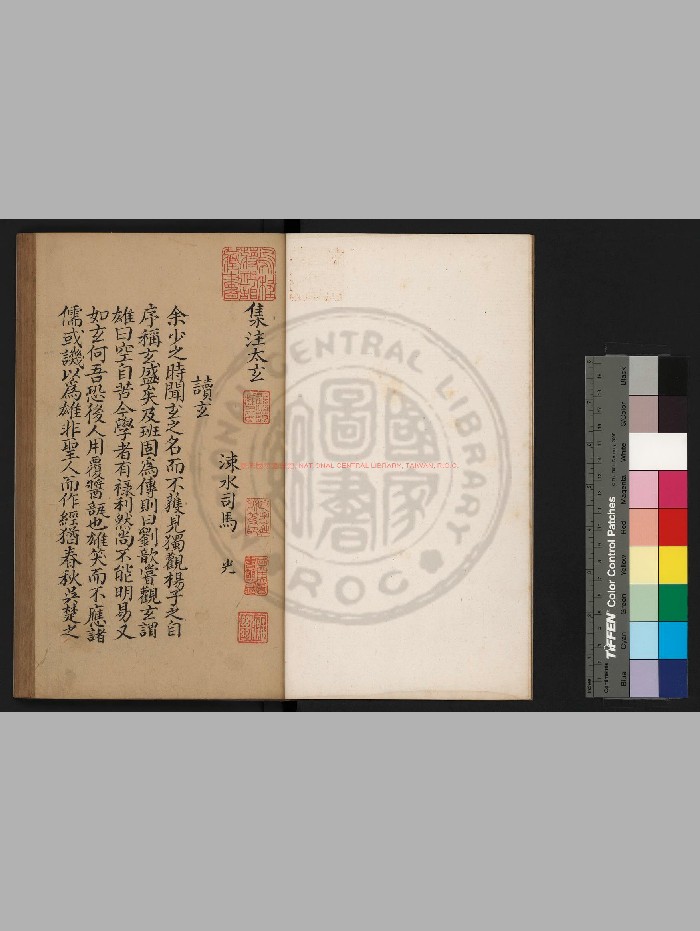 集注太玄
涑水司馬 光
讀玄
余少之時聞玄之名而不獲見獨觀楊子之自
序稱玄盛矣及班固為傳則曰劉歆嘗觀玄謂
雄曰空自苦今學者有祿利然尚不能明易又
如玄何吾恐後人用覆醬瓿也雄笑而不應諸
儒或譏以為雄非聖人而作經猶春秋吳楚之
NATIONAL CENTRAL LIBRARY
國家圖書館
R.O.C.
NATIONAL CENTRAL LIBRARY, TAIWAN, R.O.C.
TIFFEN Color Control Patches
Blue
Cyan
Green
Yellow
Red
Magenta
White
3/Color
Black
Centimetres
Inches